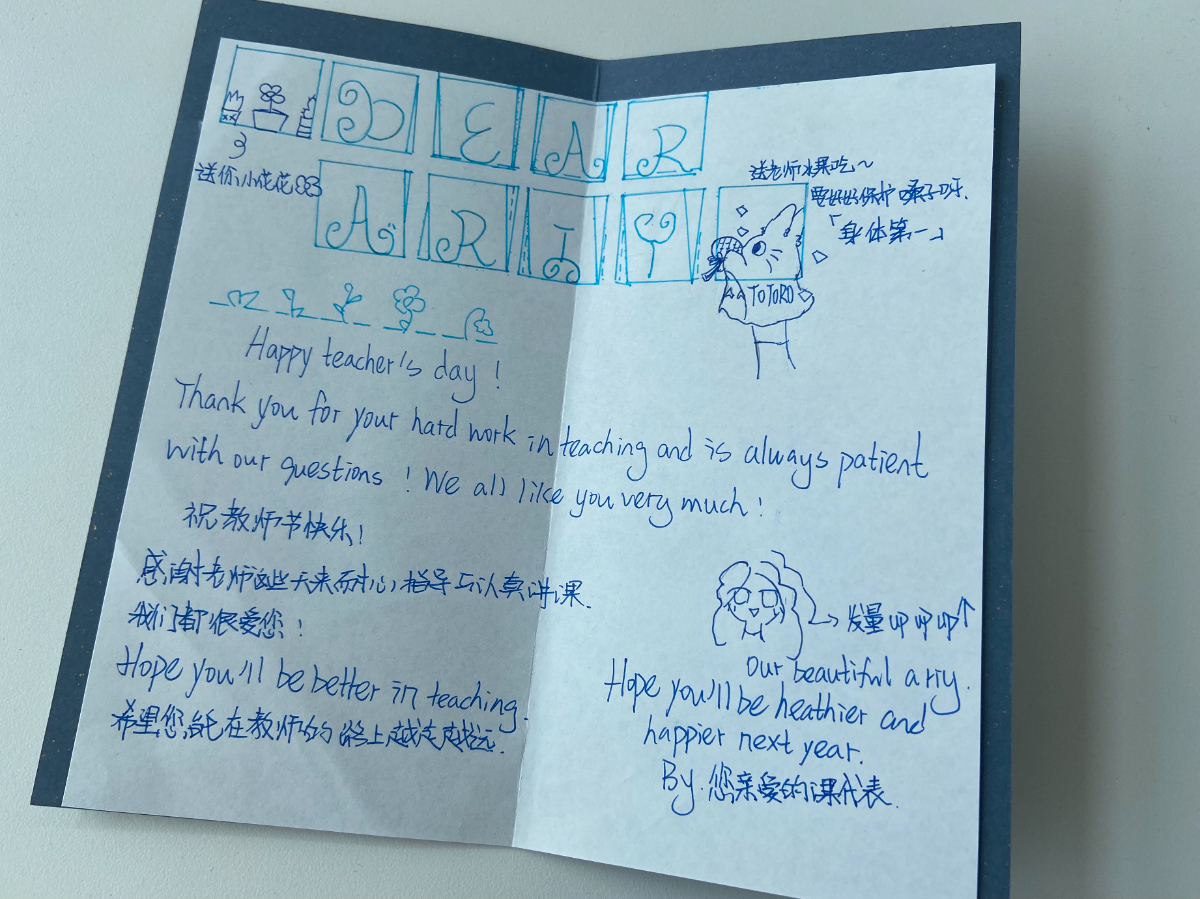 DEAR
送你小花花
ARIY
送老师水果吃~
要好好保护嗓子呀.
「身体第一」
TOTORO
Happy teacher's day!
Thank you for your hard work in teaching and is always patient
with our questions! We all like you very much!
祝教师节快乐!
感谢老师这些天来耐心指导与认真讲课.
我们都很爱您!
Hope you'll be better in teaching.
希望您能在教师的路上越走越远.
发量 up up up↑
Our beautiful ariy.
Hope you'll be heathier and
happier next year.
By.您亲爱的课代表.